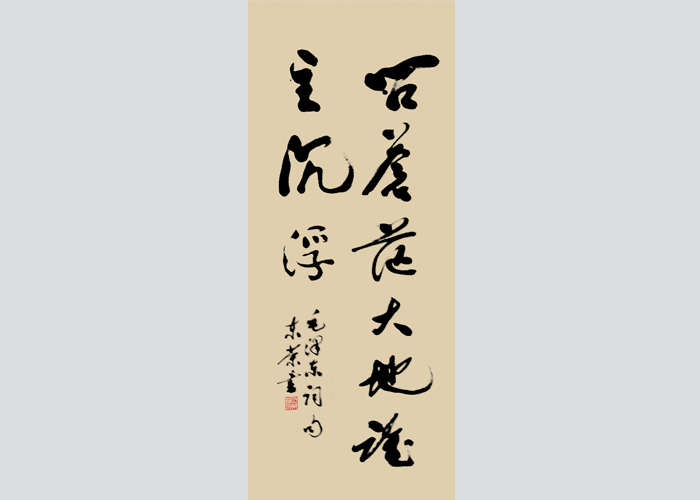 问蒼茫大地谁
主沉浮
毛泽东词句
东荣书